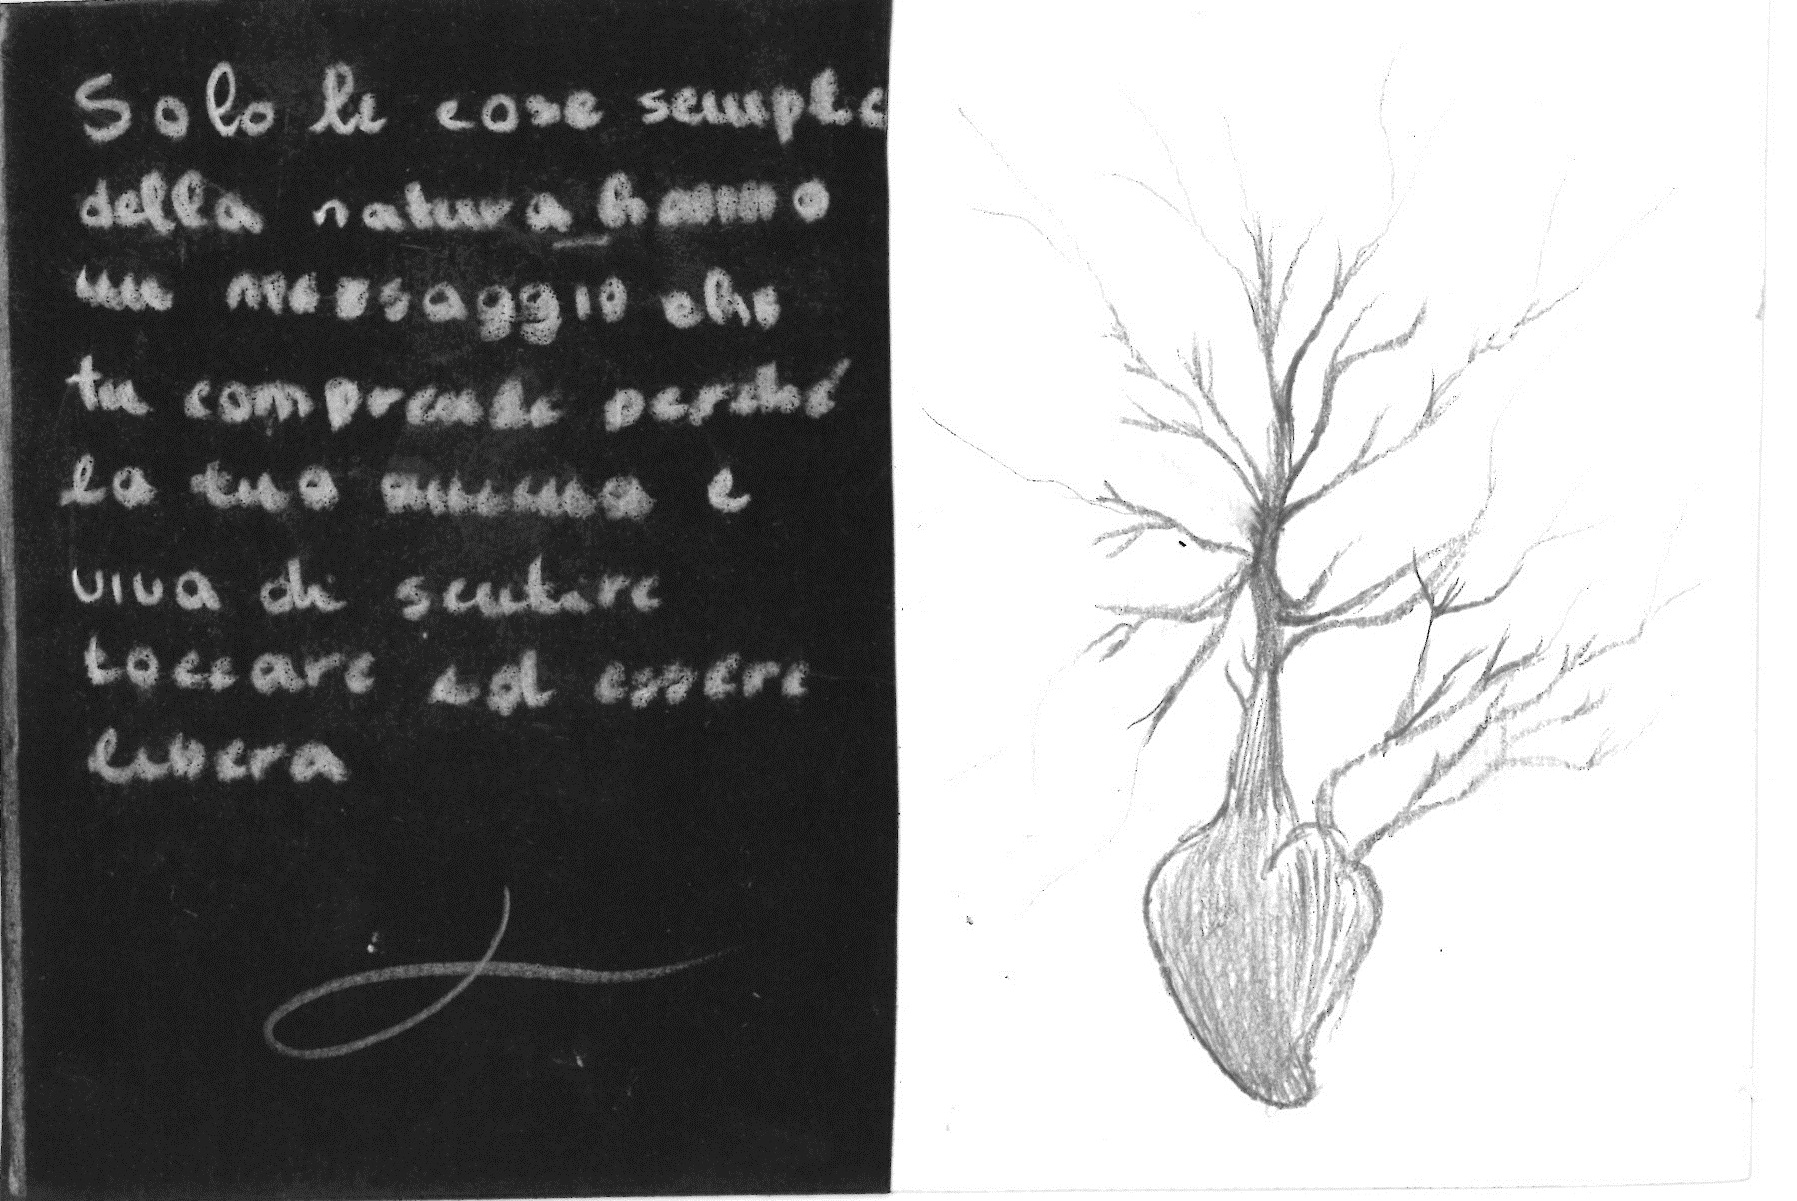 Solo le cose semplic
della natura hanno
un messaggio che
tu comprendi perché
la tua anima è
viva di sentire
toccare ed essere
libera